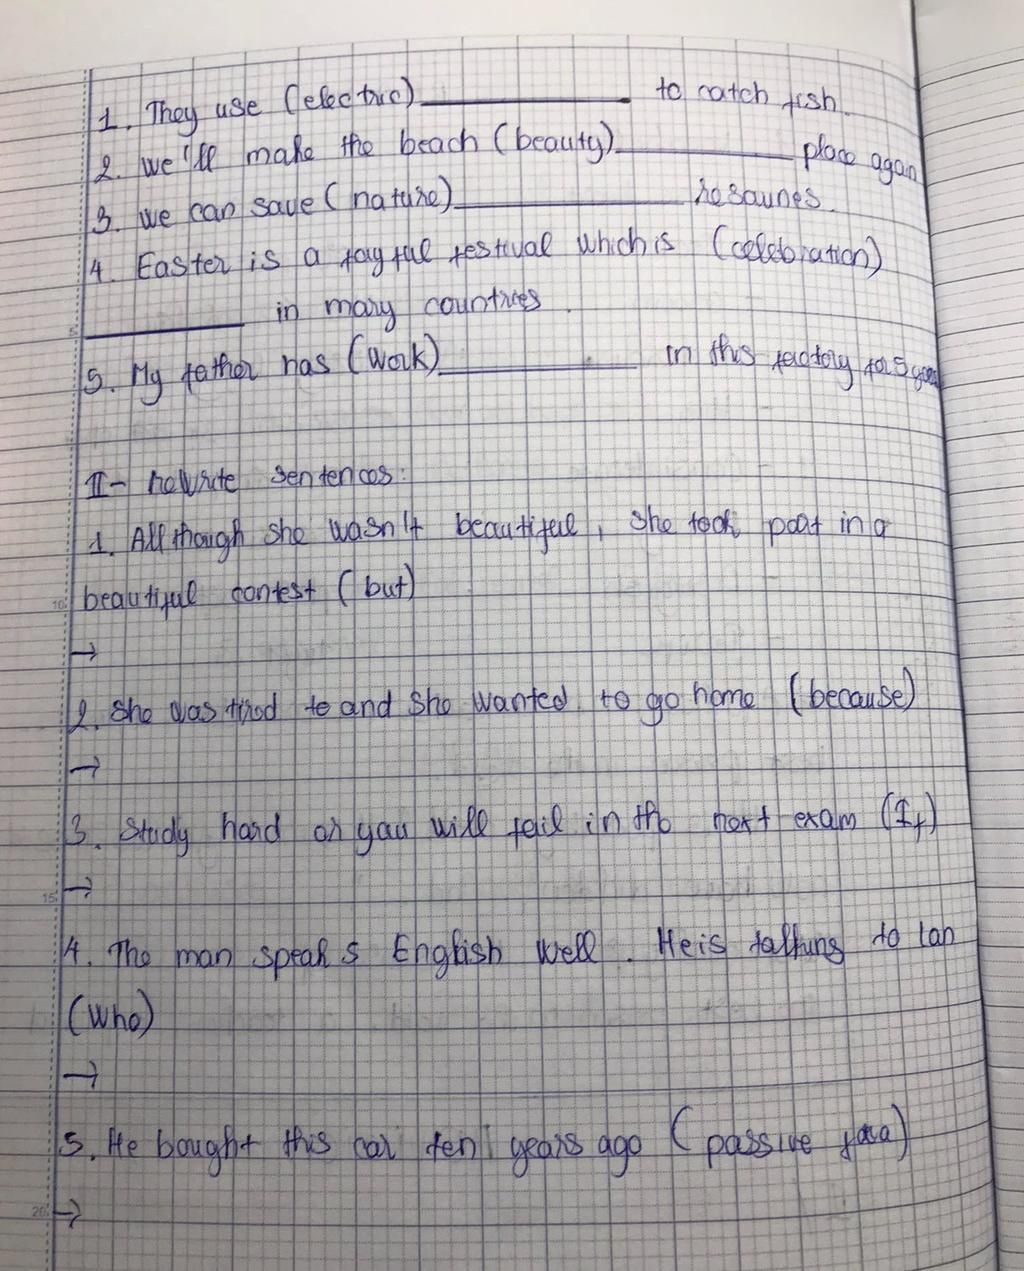 1. They use (electric)__________ to catch fish.
2. We'll make the beach (beauty)__________ place again
3. We can save (nature)__________ resources.
4. Easter is a joyful festival which is (celebration)
5 __________ in many countries.
5. My father has (work)__________ in this factory for 5 years
II- Rewrite sentences:
1. Allthough she wasn't beautiful, she took part in a
10 beautiful contest (but)
→
2. She was tired to and she wanted to go home (because)
→
3. Study hard or you will fail in the next exam (If)
15 →
4. The man speaks English well. He is talking to Lan
(Who)
→
5. He bought this car ten years ago (passive)
20 →